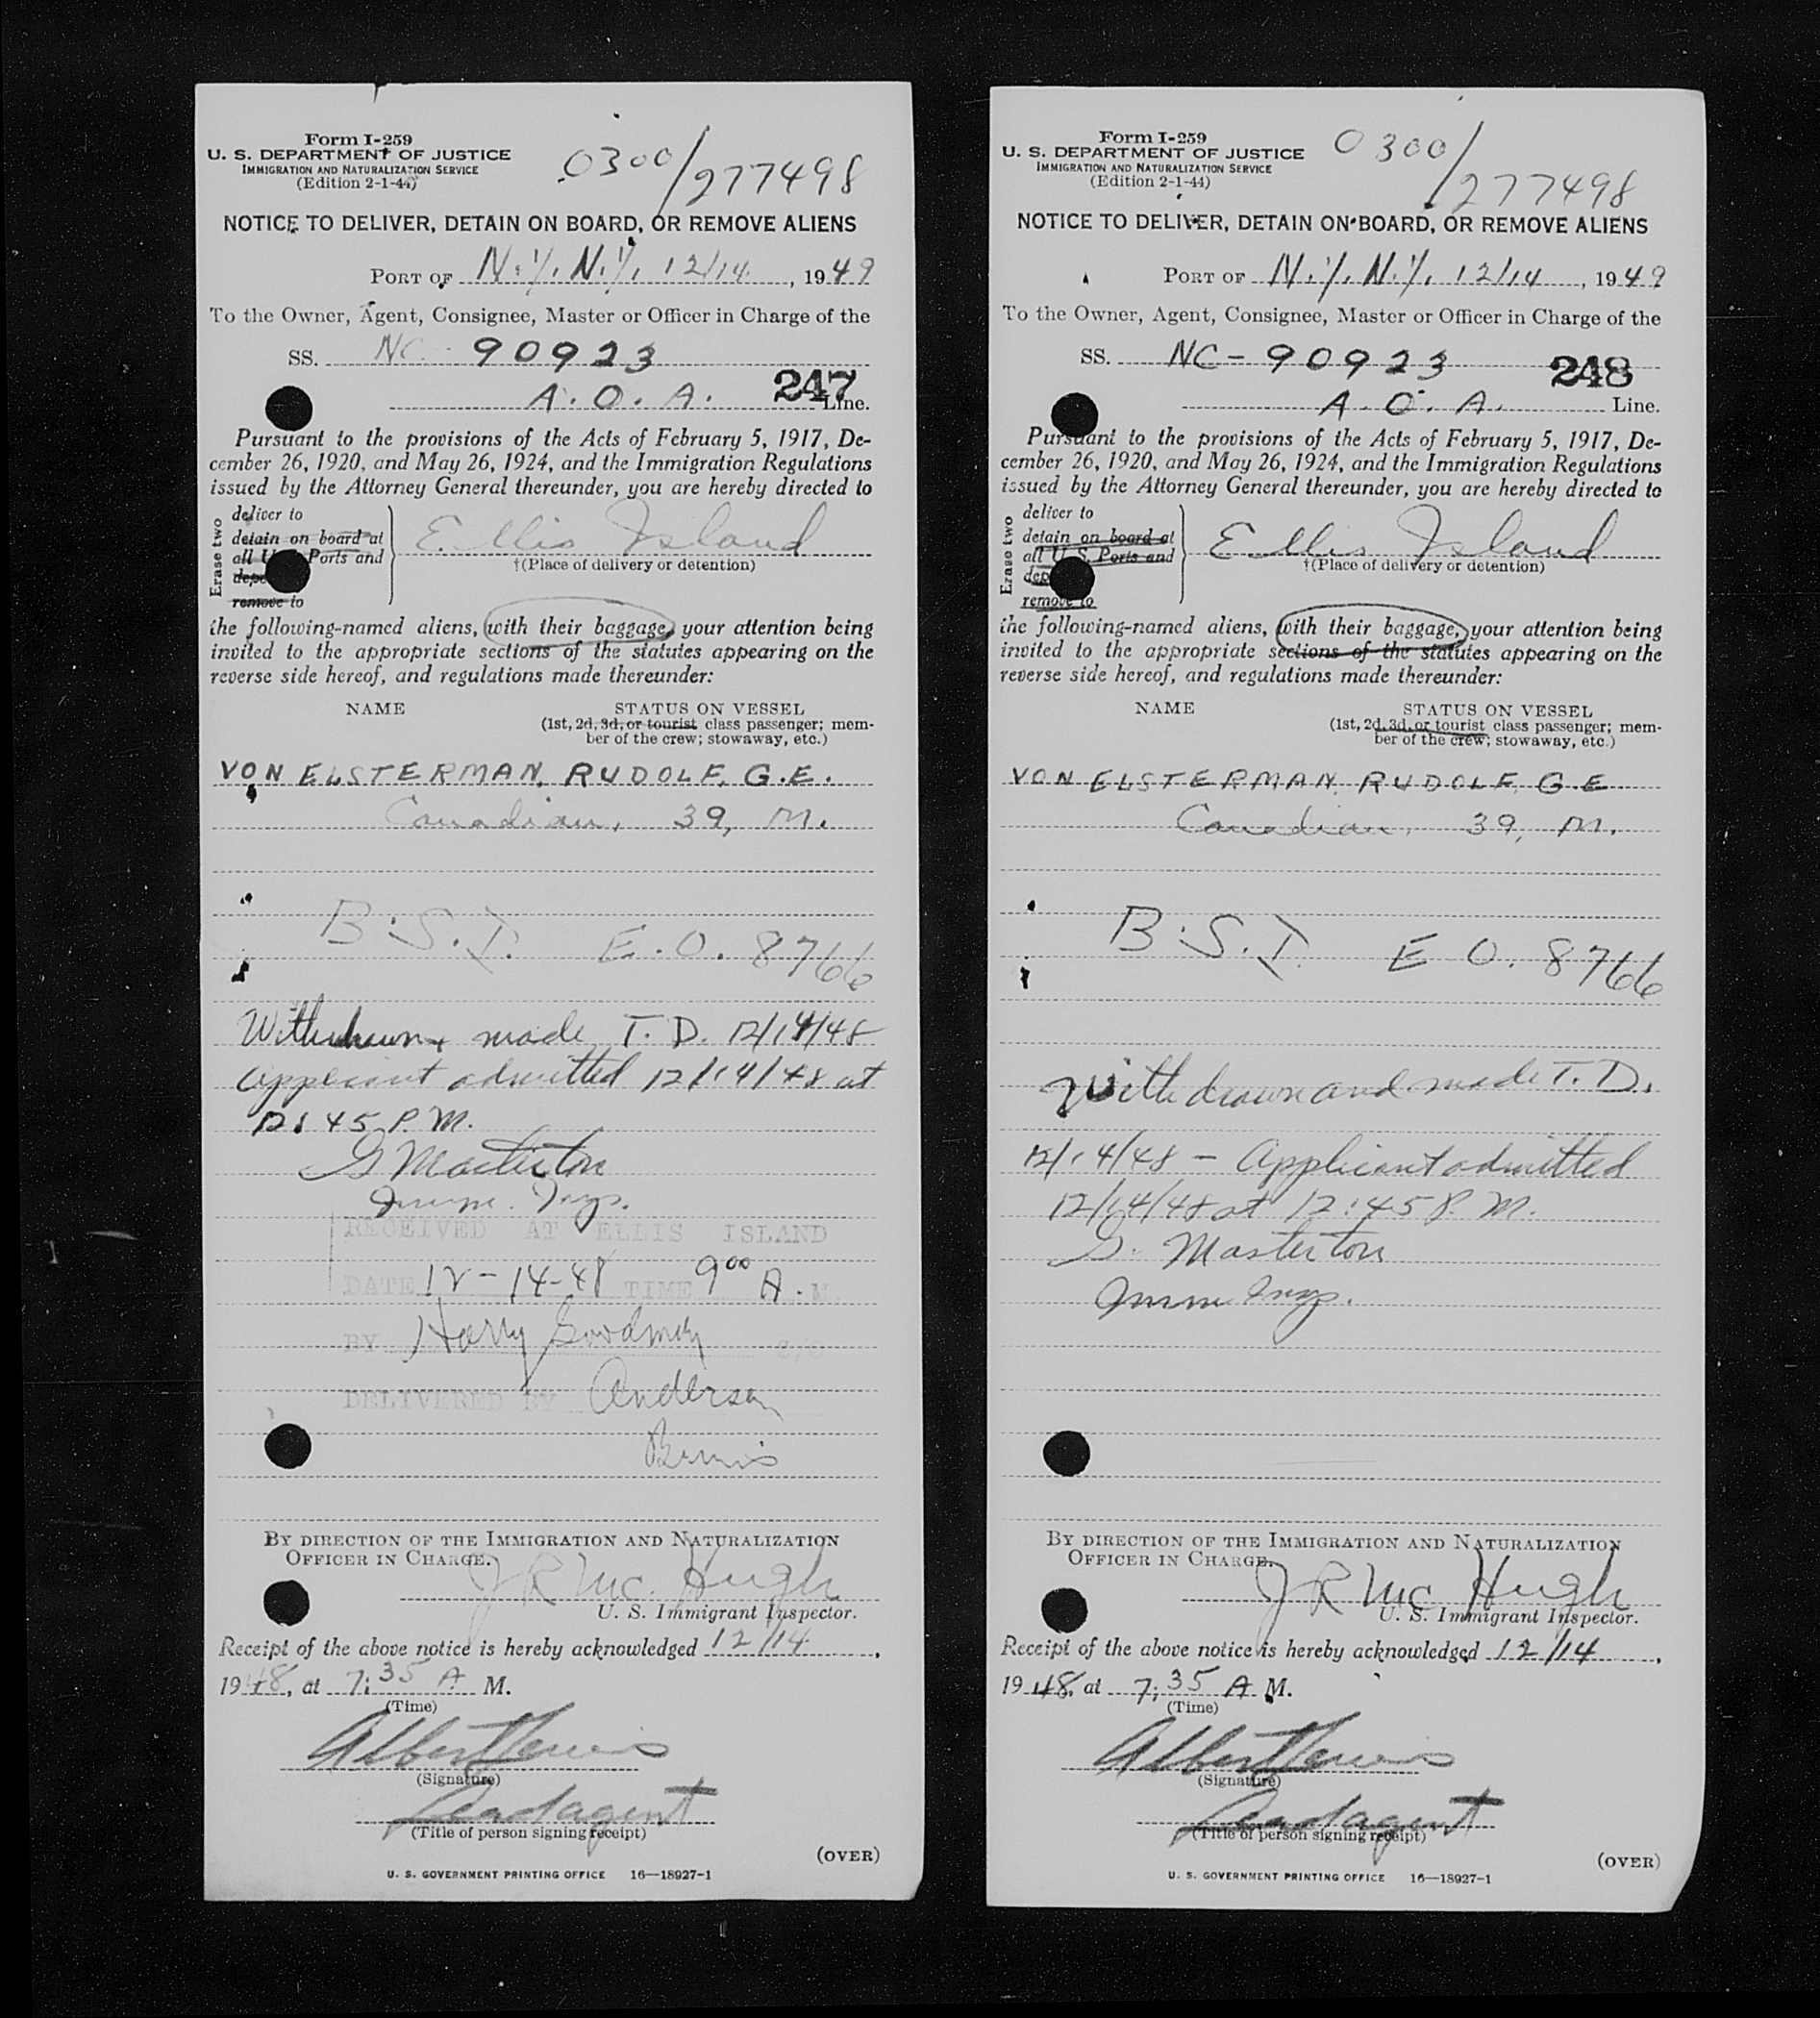 Form I-259
U. S. DEPARTMENT OF JUSTICE
IMMIGRATION AND NATURALIZATION SERVICE
(Edition 2-1-44)
0300/277498
NOTICE TO DELIVER, DETAIN ON BOARD, OR REMOVE ALIENS
PORT OF N.Y. N.Y. 12/14, 1949
To the Owner, Agent, Consignee, Master or Officer in Charge of the
SS. NC - 90923
247
A. O. A. Line.
Pursuant to the provisions of the Acts of February 5, 1917, De-
cember 26, 1920, and May 26, 1924, and the Immigration Regulations
issued by the Attorney General thereunder, you are hereby directed to
Erase two
deliver to
detain on board at
all U. S. Ports and
remove to
Ellis Island
†(Place of delivery or detention)
the following-named aliens, with their baggage, your attention being
invited to the appropriate sections of the statutes appearing on the
reverse side hereof, and regulations made thereunder:
NAME STATUS ON VESSEL
(1st, 2d, 3d, or tourist class passenger; mem-
ber of the crew; stowaway, etc.)
VON ELSTERMAN, RUDOLF, G.E.
Canadian, 39, M.
B.S.I. E.O. 8766
Withdrawn + made T. D. 12/14/48
applicant admitted 12/14/48 at
12:45 P. M.
G Masterton
Imm. Insp.
RECEIVED AT ELLIS ISLAND
DATE 12-14-48 TIME 9 00 A.M.
BY Harry Goodman
DELIVERED BY Anderson
BY DIRECTION OF THE IMMIGRATION AND NATURALIZATION
OFFICER IN CHARGE.
J R Mc Hugh
U. S. Immigrant Inspector.
Receipt of the above notice is hereby acknowledged 12/14,
1948, at 7:35 A M.
(Time)
Albert Lewis
(Signature)
Lead agent
(Title of person signing receipt)
(OVER)
U. S. GOVERNMENT PRINTING OFFICE 16—18927-1
Form I-259
U. S. DEPARTMENT OF JUSTICE
IMMIGRATION AND NATURALIZATION SERVICE
(Edition 2-1-44)
0300/277498
NOTICE TO DELIVER, DETAIN ON BOARD, OR REMOVE ALIENS
PORT OF N.Y. N.Y. 12/14, 1949
To the Owner, Agent, Consignee, Master or Officer in Charge of the
SS. NC - 90923
248
A. O. A. Line.
Pursuant to the provisions of the Acts of February 5, 1917, De-
cember 26, 1920, and May 26, 1924, and the Immigration Regulations
issued by the Attorney General thereunder, you are hereby directed to
Erase two
deliver to
detain on board at
all U. S. Ports and
remove to
Ellis Island
†(Place of delivery or detention)
the following-named aliens, with their baggage, your attention being
invited to the appropriate sections of the statutes appearing on the
reverse side hereof, and regulations made thereunder:
NAME STATUS ON VESSEL
(1st, 2d, 3d, or tourist class passenger; mem-
ber of the crew; stowaway, etc.)
VON ELSTERMAN, RUDOLF, G.E
Canadian, 39, M.
B.S.I. E O. 8766
Withdrawn and made T. D.
12/14/48 - Applicant admitted
12/14/48 at 12:45 P. M.
G. Masterton
Imm Insp.
BY DIRECTION OF THE IMMIGRATION AND NATURALIZATION
OFFICER IN CHARGE.
J R Mc Hugh
U. S. Immigrant Inspector.
Receipt of the above notice is hereby acknowledged 12/14,
1948, at 7:35 A M.
(Time)
Albert Lewis
(Signature)
Lead agent
(Title of person signing receipt)
(OVER)
U. S. GOVERNMENT PRINTING OFFICE 16—18927-1